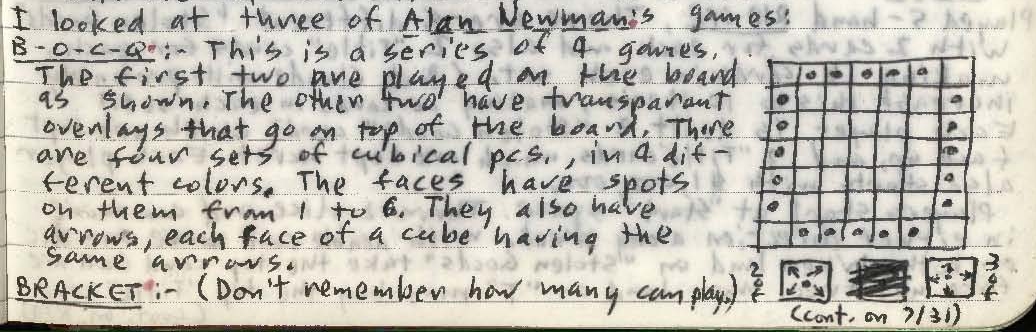 I looked at three of Alan Newman's games:
B-O-C-Q:- This is a series of 4 games.
The first two are played on the board
as shown. The other two have transparant
overlays that go on top of the board. There
are four sets of cubical pcs., in 4 dif-
ferent colors. The faces have spots
on them from 1 to 6. They also have
arrows, each face of a cube having the
same arrows.
BRACKET:- (Don't remember how many can play.)
2 of
3 of
(cont. on 7/31)